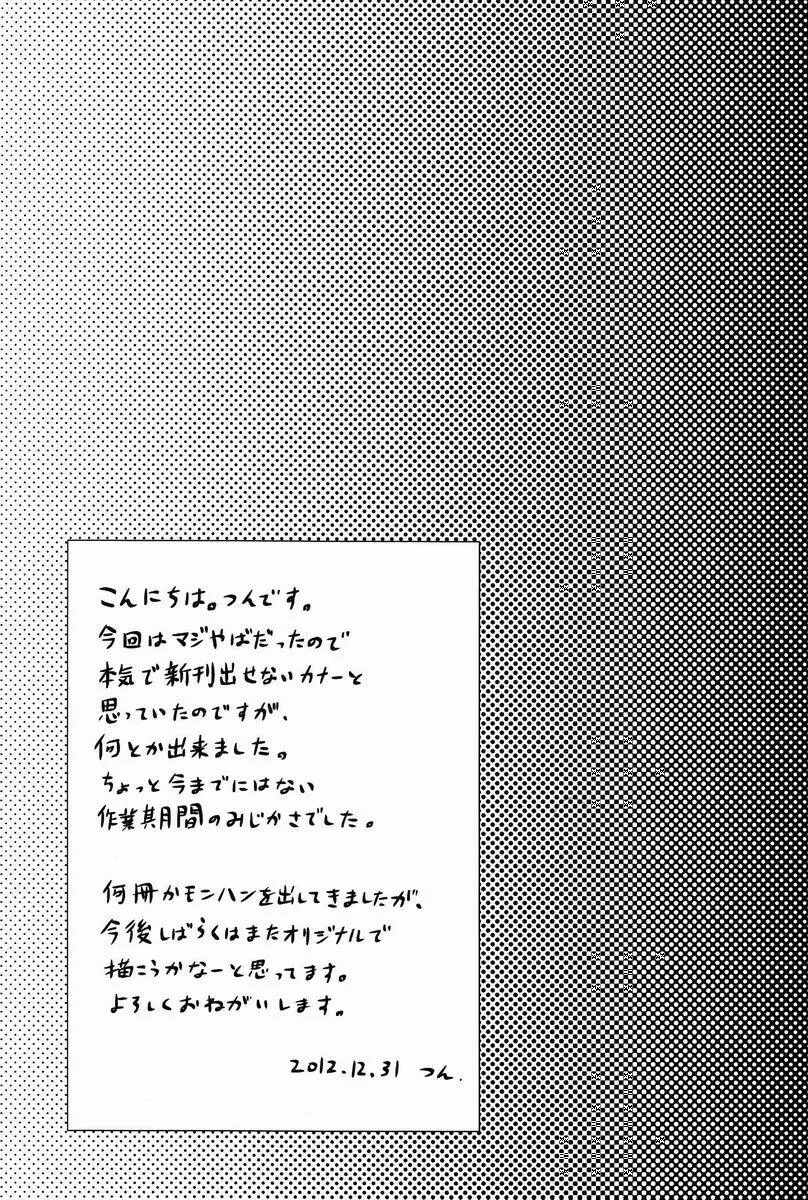 こんにちは。つんです。
今回はマジやばだったので
本気で新刊出せないカナーと
思っていたのですが、
何とか出来ました。
ちょっと今までにはない
作業期間のみじかさでした。
何冊かモンハンを出してきましたが、
今後しばらくはまたオリジナルで
描こうかなーと思ってます。
よろしくおねがいします。
2012.12.31 つん.